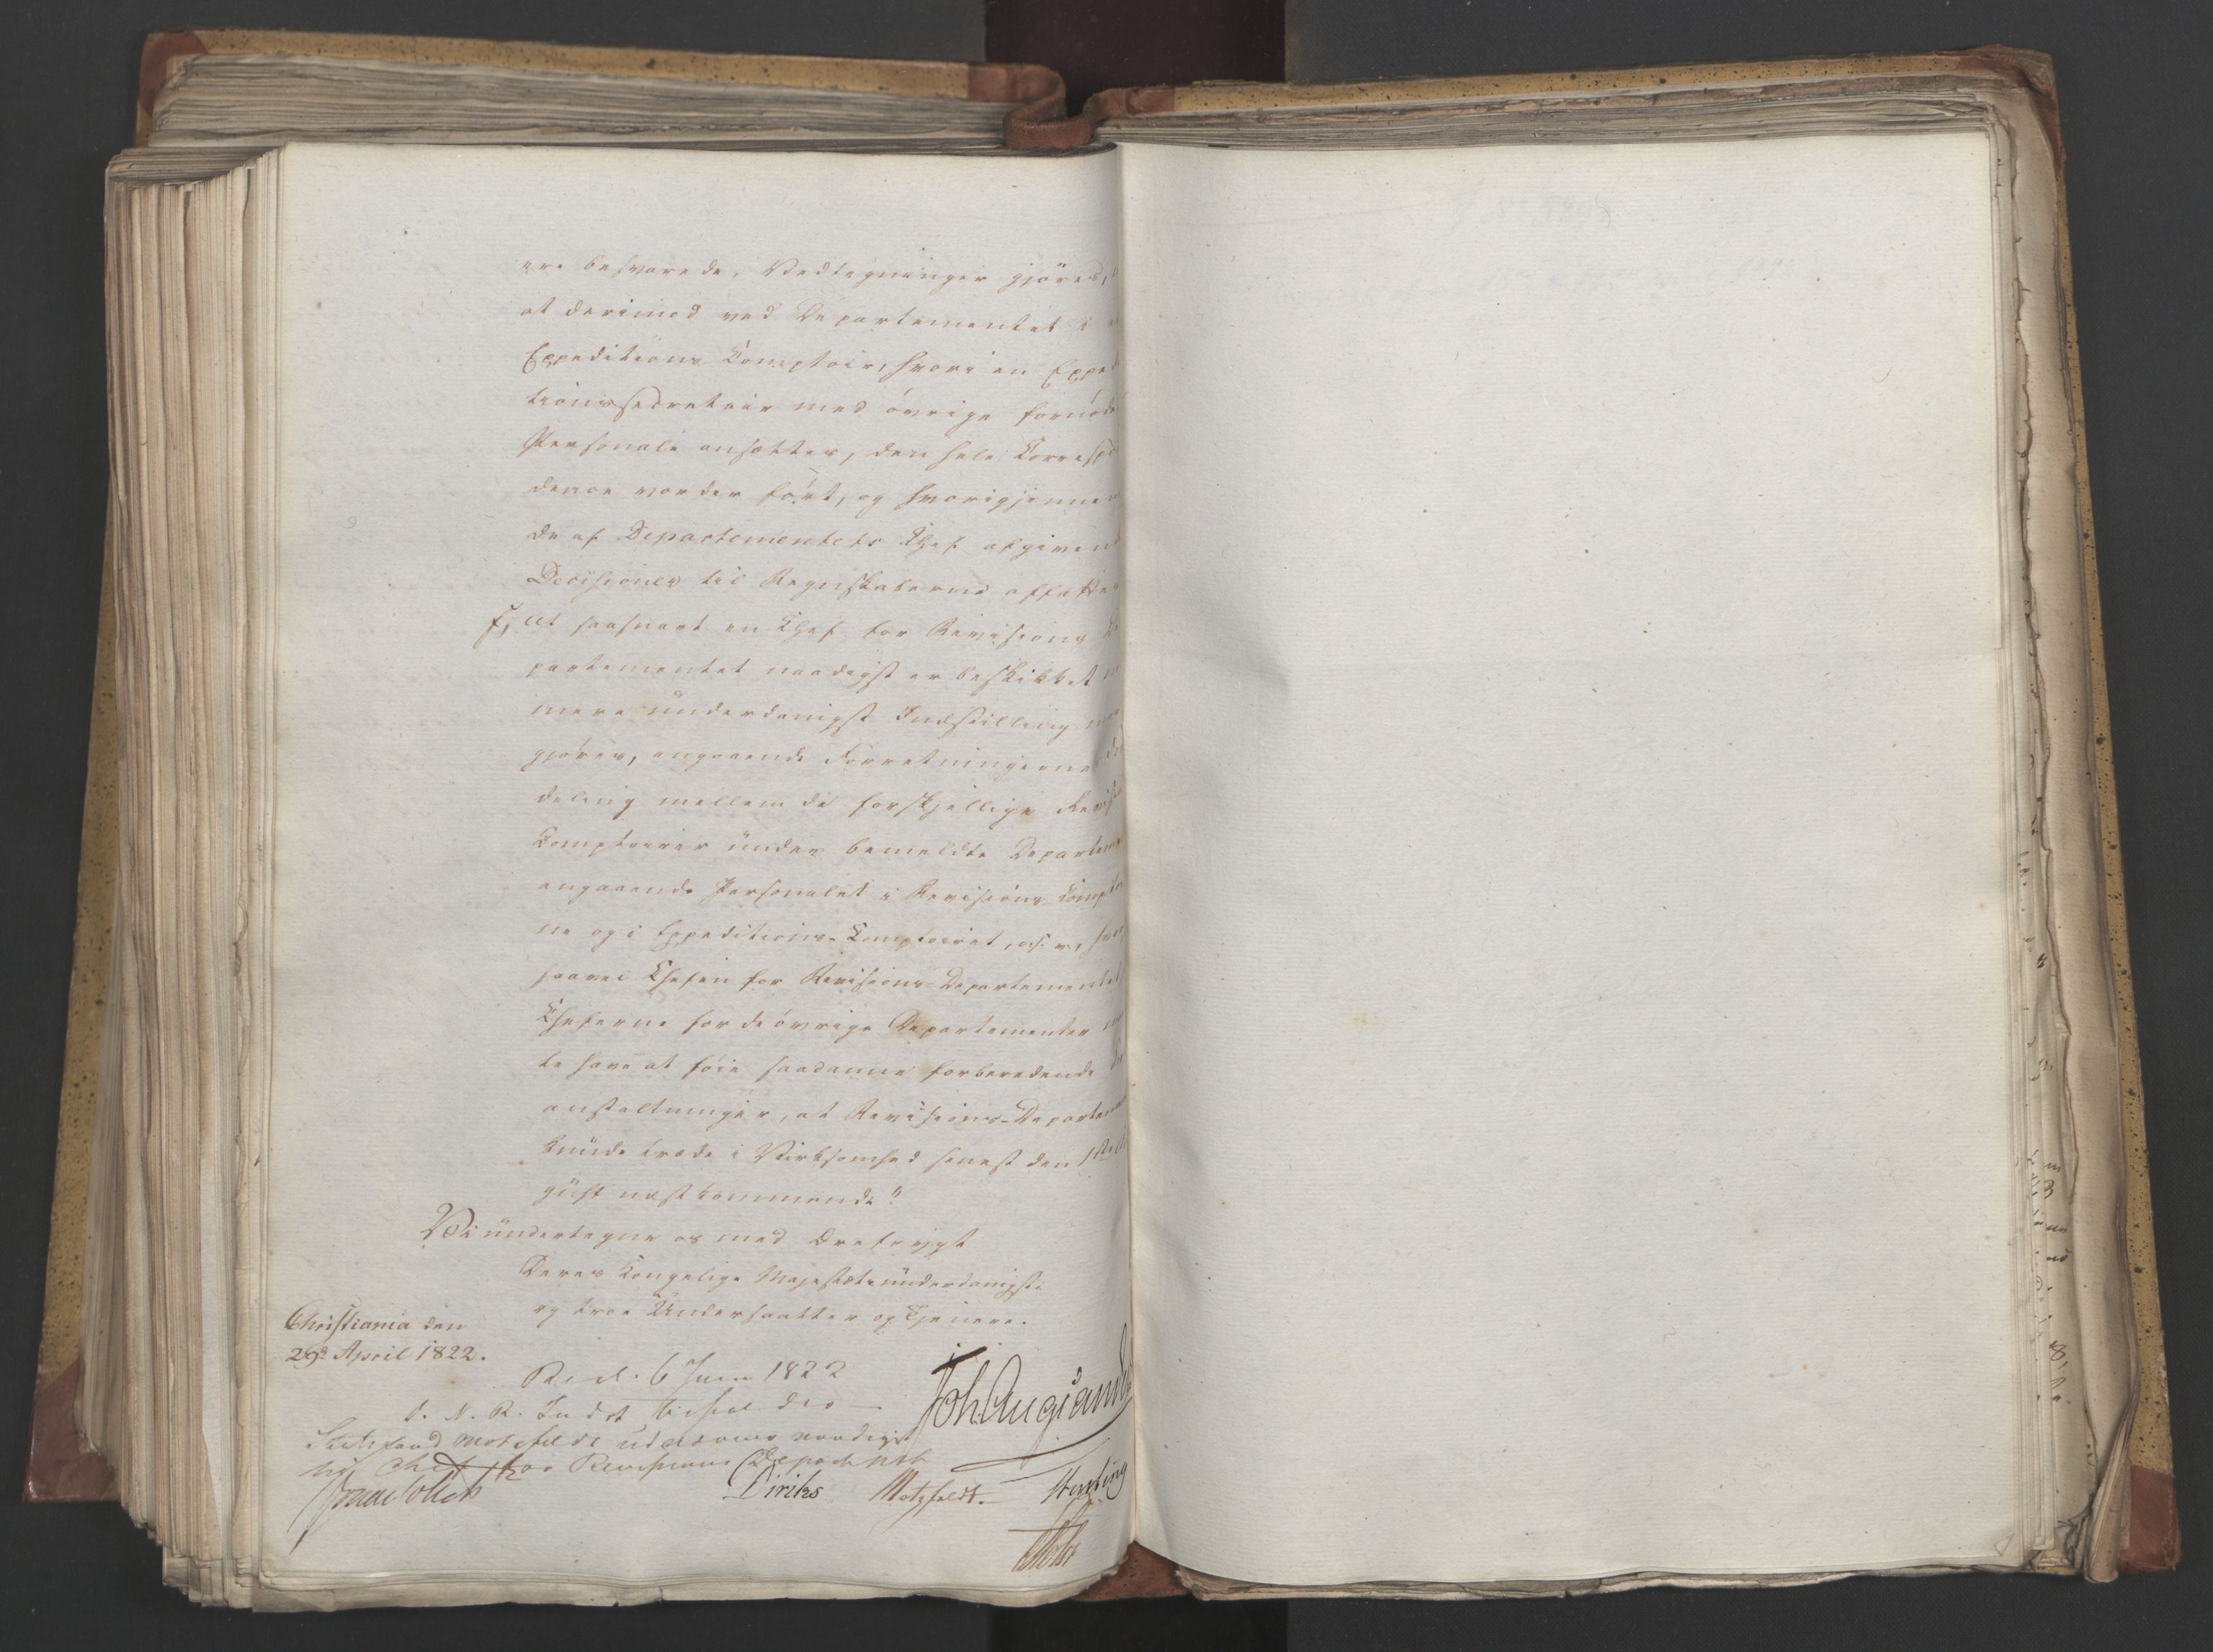 ere besvarede, Vedtegninger gjöres,
at derimod ved Departementet i
Expeditions Comptoir, hvori en Expedi
tionssecretair med övrige fornödne
Personale ansættes, den hele Correspon
dence vorder fört, og hvorigjennem
de af Departementets Chef afgivende
Decisioner til Regnskaberne affattes
f, at saasnart en Chef for Revisions De
partementet naadigst er beskikket
mere underdanigst Indstilling maa
gjöres, angaaende Forretningernes For
deling mellem de forskjellige Revisions
Comptoirer under bemeldte Departement
angaaende Personalet i Revisions Comptoirer
ne og i Expeditions-Comptoiret, o.s.v.,
saavel Chefen for Revisions-Departementet
Cheferne for de övrige Departementer
te have at föie saadanne forberedende
anstaltninger, at Revisions-Departement
kunde træde i Virksomhed senest den 1ste
gust næstkommende"
Vi undertegne os med Ærefrygt
Deres Kongelige Majestæts underdanigste
og troe Undersaatter og Tjenere.
Christiania den
29de April 1822.
Res. 6 Juni 1822
d. N. R. Indst bifaldes
Statsraad Motzfeldt udnævnes naadigst
til Chef for Revisions Departmt
Joh. Aug: Sand
Diriks Motzfeldt.